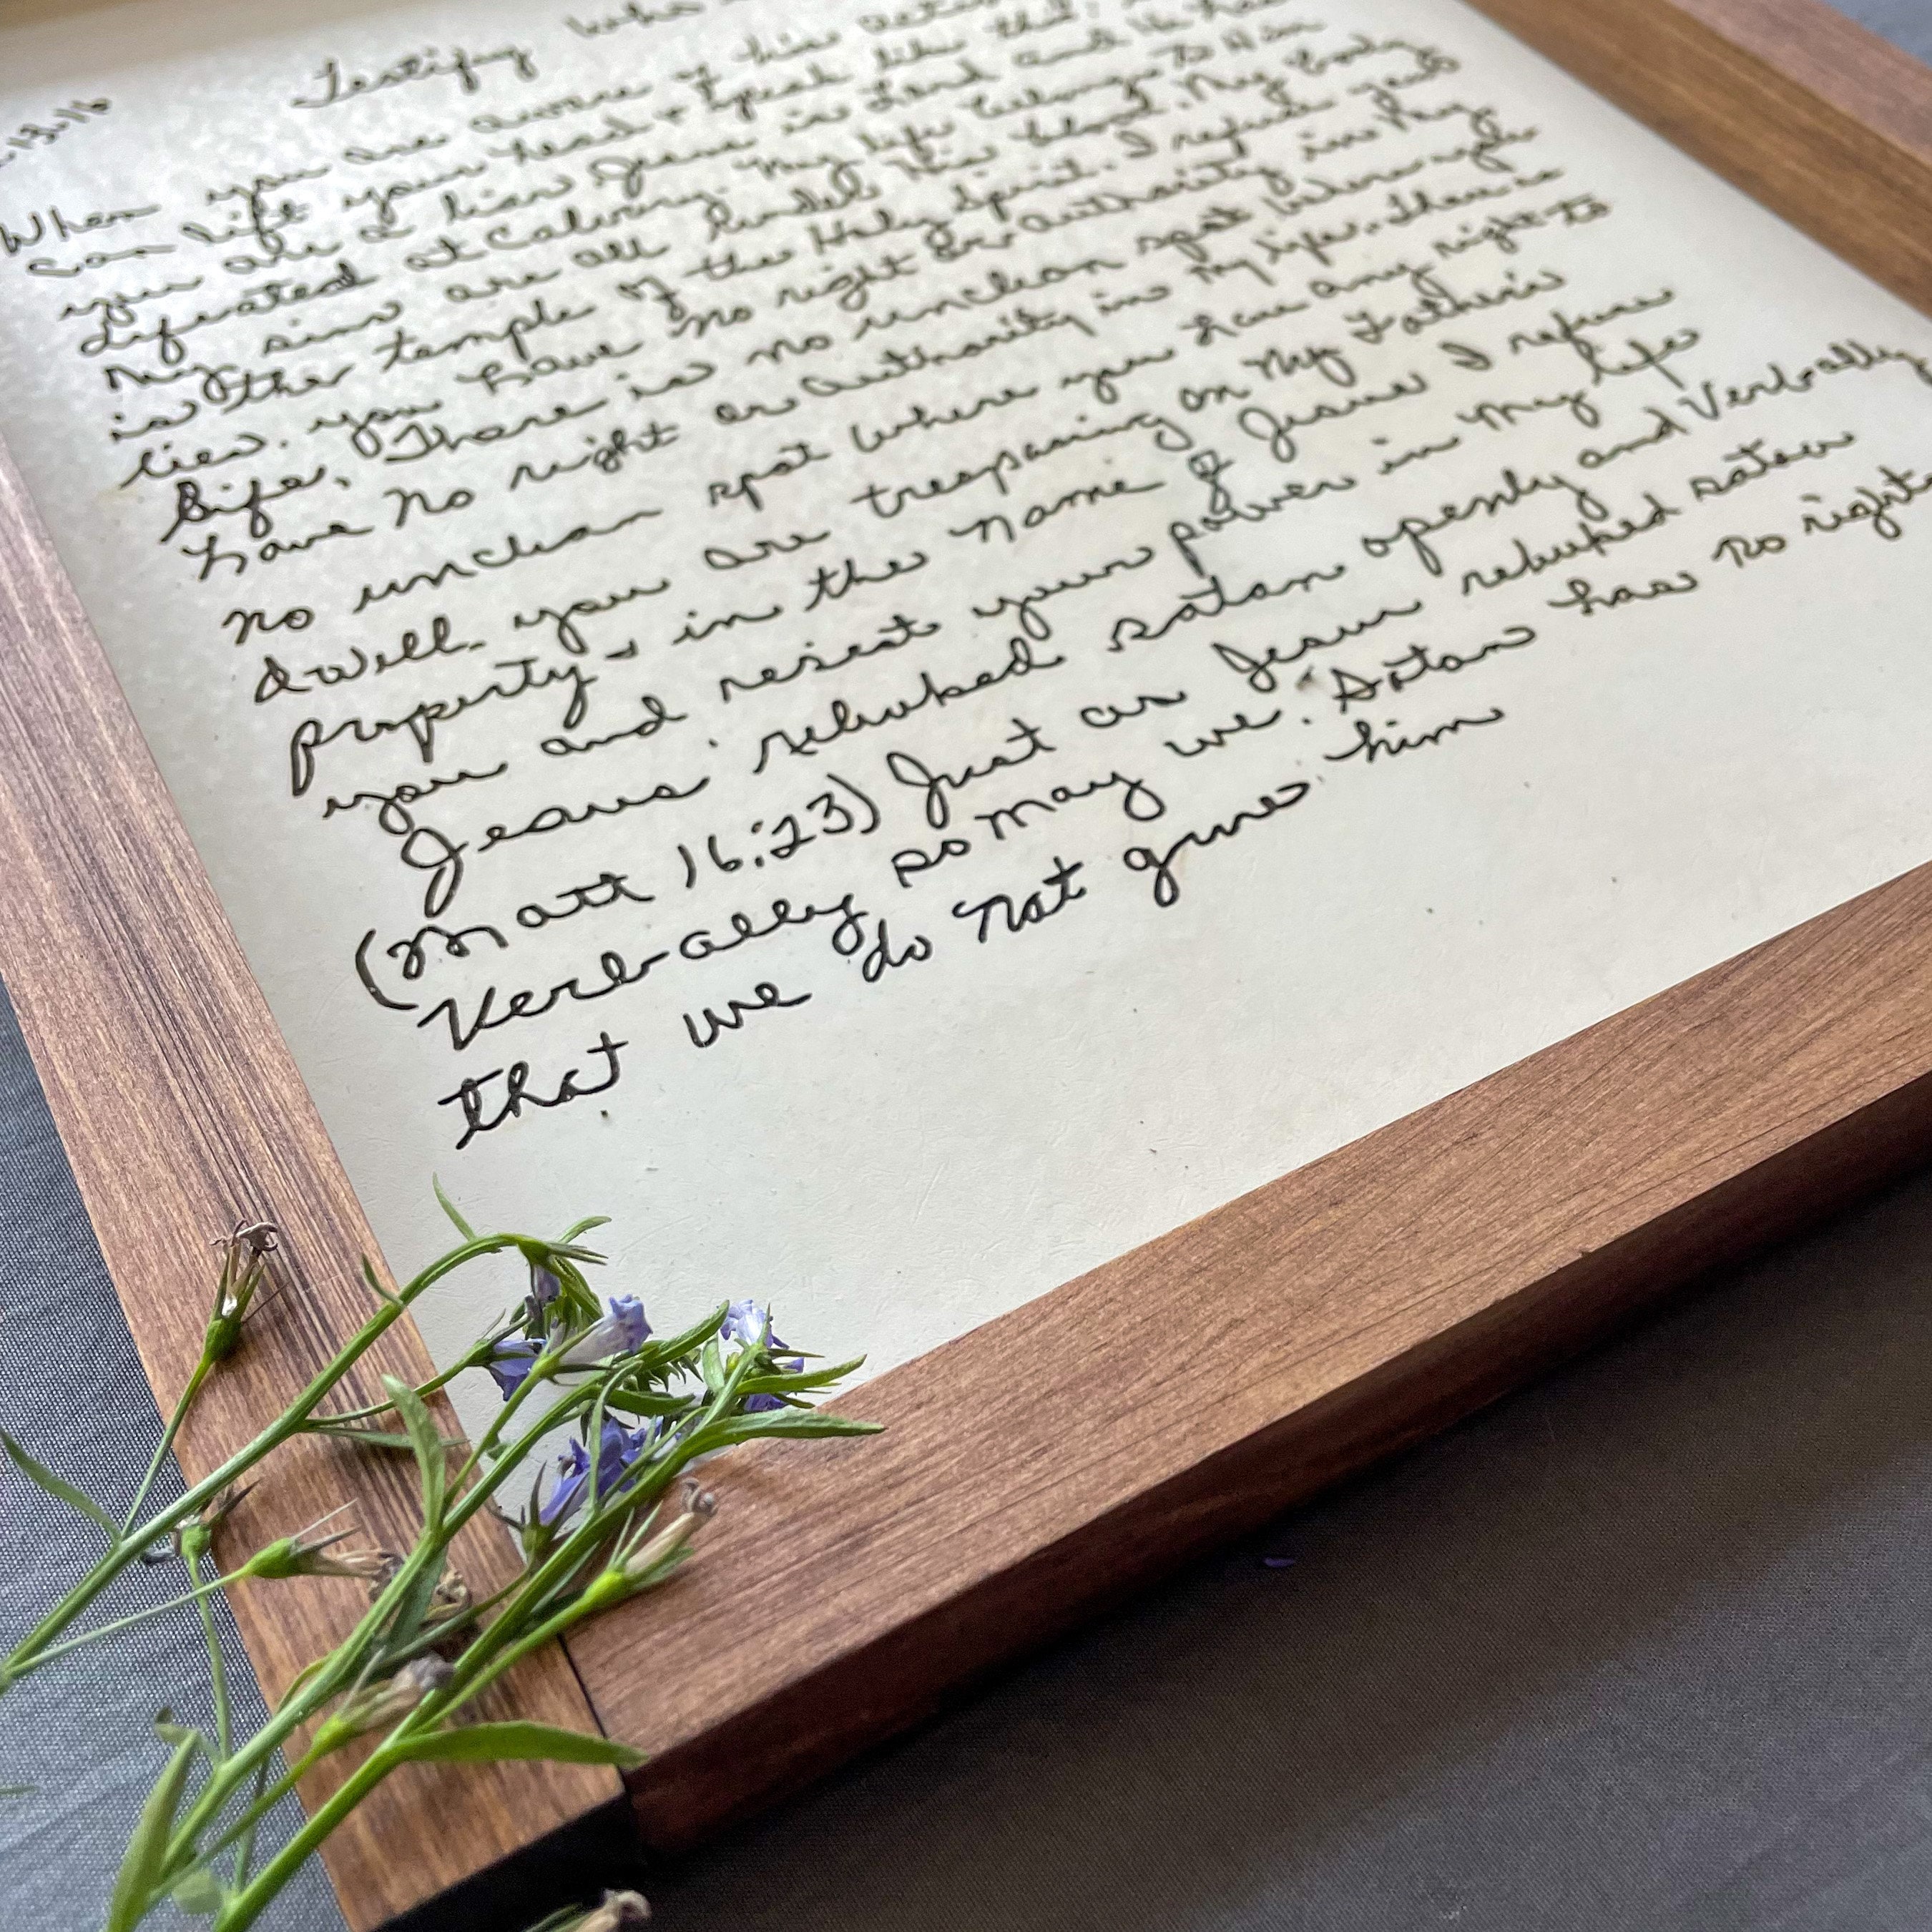 13-16
Testify
When you are aware of his
can lift your head & speak like this:
you are a liar Jesus is Lord and He has
defeated at Calvary. My life belongs to Him
My sins are all under His blood. My body
is the temple of the Holy Spirit. I refute your
lies. you have no right or authority in my
life. There is no unclean spot where you
have no right or authority in my life. there is
no unclean spot where you have any right to
dwell. you are trespasing on My Father's
property & in the name of Jesus I refuse
you and resist your power in my life
Jesus rebuked satan openly and Verbally
(Matt 16:23) Just as Jesus rebuked satan
Verbally so may we. Satan has no rights
that we do not give him